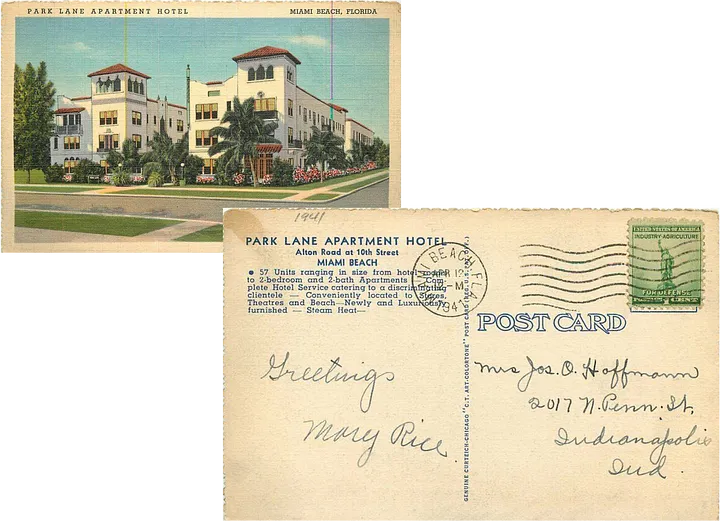 PARK LANE APARTMENT HOTEL MIAMI BEACH, FLORIDA
1941
PARK LANE APARTMENT HOTEL
Alton Road at 10th Street
MIAMI BEACH
● 57 Units ranging in size from hotel
to 2-bedroom and 2-bath Apartments — Com-
plete Hotel Service catering to a discriminating
clientele — Conveniently located to Stores,
Theatres and Beach—Newly and Luxuriously
furnished — Steam Heat—
MIAMI BEACH, FLA.
APR 12
-M
1941
UNITED STATES OF AMERICA
INDUSTRY-AGRICULTURE
FOR DEFENSE
1 CENT
POST CARD
GENUINE CURTEICH-CHICAGO "C.T. ART-COLORTONE" POST CARD (REG. U.S. PAT. OFF.)
Greetings
Mary Rice
Mrs Jos. O. Hoffmann
2017 N. Penn. St.
Indianapolis
Ind.